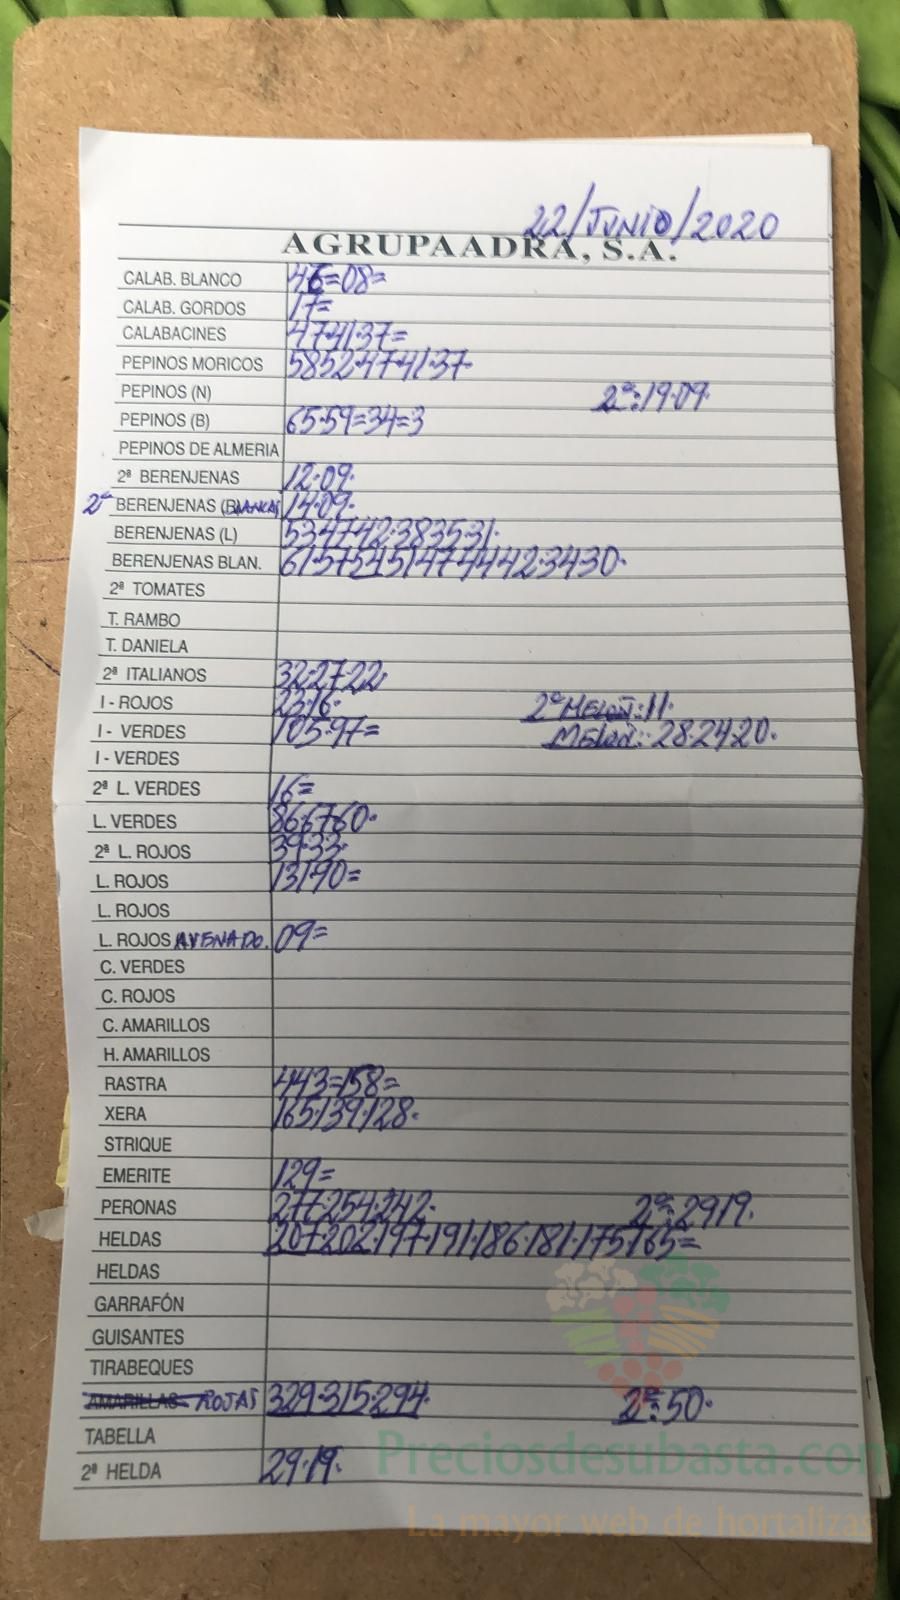 22/JUNIO/2020
AGRUPAADRA, S.A.
CALAB. BLANCO 46=08=
CALAB. GORDOS 17=
CALABACINES 47·41·37=
PEPINOS MORICOS 58·52·47·41·37·
PEPINOS (N) 2ª:19·09·
PEPINOS (B) 65·59=34=3
PEPINOS DE ALMERIA
2ª BERENJENAS 12·09·
2ª BERENJENAS (BLANCAS 14·09·
BERENJENAS (L) 53·47·42·38·35·31·
BERENJENAS BLAN. 61·57·54·51·47·44·42·34·30·
2ª TOMATES
T. RAMBO
T. DANIELA
2ª ITALIANOS 32·27·22·
I - ROJOS 23·16· 2ª MELOÑ:11·
I - VERDES 105·97= MELOÑ: 28·24·20·
I - VERDES
2ª L. VERDES 16=
L. VERDES 86·67·60·
2ª L. ROJOS 39·33·
L. ROJOS 131·90=
L. ROJOS
L. ROJOS AVENADO. 09=
C. VERDES
C. ROJOS
C. AMARILLOS
H. AMARILLOS
RASTRA 443=158=
XERA 165·139·128·
STRIQUE
EMERITE 129=
PERONAS 277·254·242· 2ª:29·19·
HELDAS 207·202·197·191·186·181·175·165=
HELDAS
GARRAFÓN
GUISANTES
TIRABEQUES
AMARILLAS ROJAS 329·315·294· 2ª:50·
TABELLA
2ª HELDA 29·19·
Preciosdesubasta.com
La mayor web de hortalizas